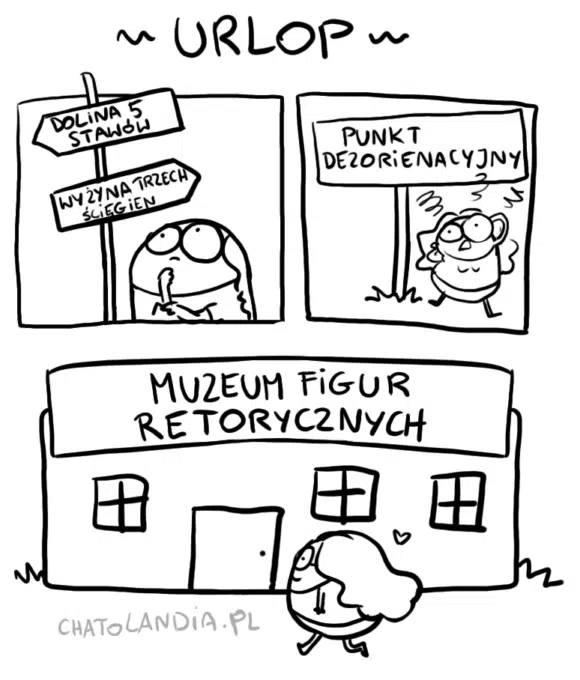 ~ URLOP ~
DOLINA 5
STAWÓW
WYŻYNA TRZECH
ŚCIĘGIEN
PUNKT
DEZORIENACYJNY
MUZEUM FIGUR
RETORYCZNYCH
CHATOLANDIA.PL